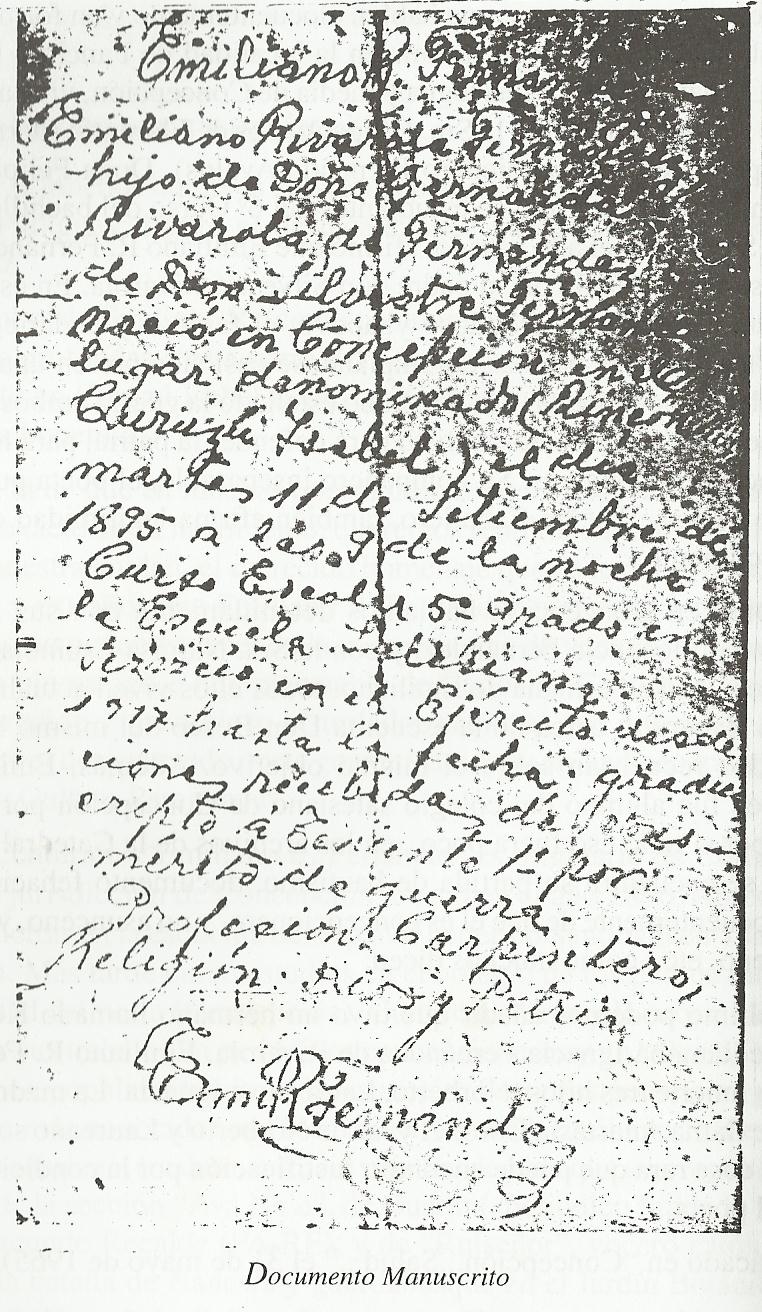 Emiliano R. Fernan
Emiliano Rivarola Fernandez
hijo de Doña Bernarda
Rivarola de Fernández
de Don Silvestre Fernande
Nació en Concepción en el
lugar denominado (Rincón
Curuzú Isabel) el dia
martes 11 de Setiembre de
1895 a las 9 de la noche
Curso Escolar 5º grado en
la Escuela Salesiana.
Servicio en el Ejercito desde
1917 hasta la fecha: gradua
ciones recibida, de cons-
cripto a Teniente 1º por
merito de guerra.
Profesión: Carpintero,
Religión: Dios y Patria
Emil R Fernández
Documento Manuscrito